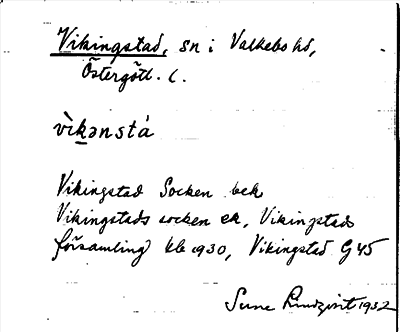 Vikingstad, sn i Valkebo hd,
Östergötl. l.
vìkənstá
Vikingstad Socken bek
Vikingstads socken ek, Vikingstads
församling kb 1930, Vikingstad G45
Sune Lindqvist 1932